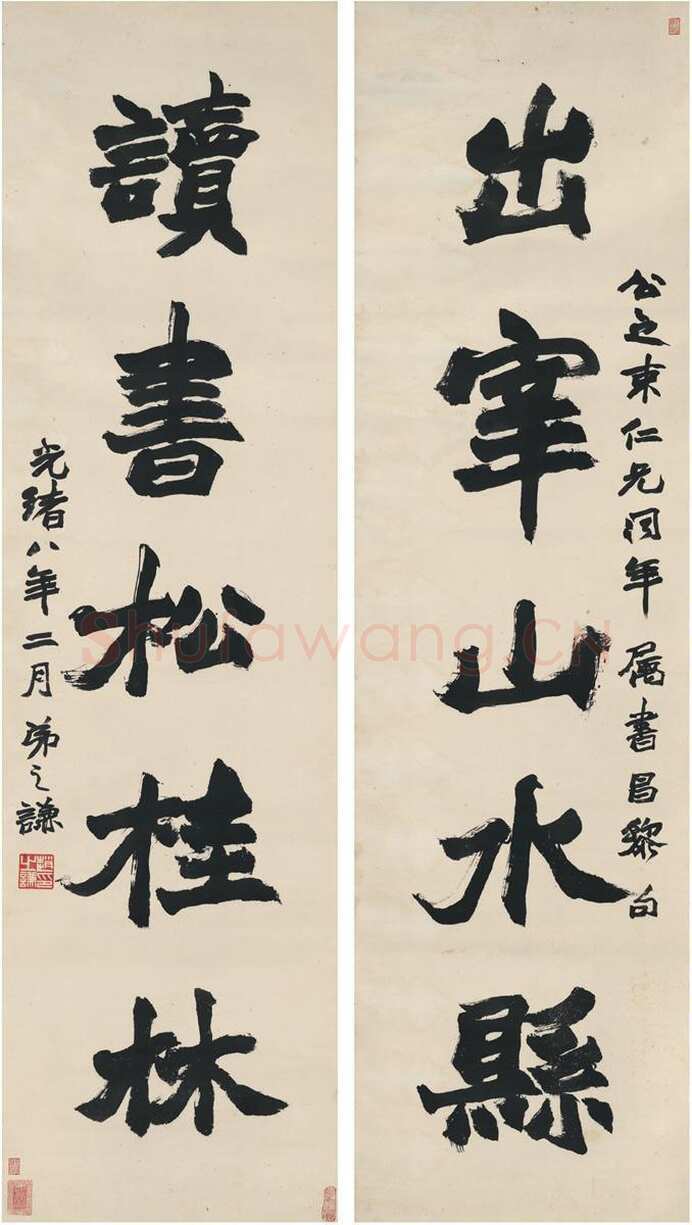 公束仁兄同年属書昌黎句
出宰山水縣
讀書松桂林
光緒八年二月弟之謙
趙印之謙
Shufawang.CN